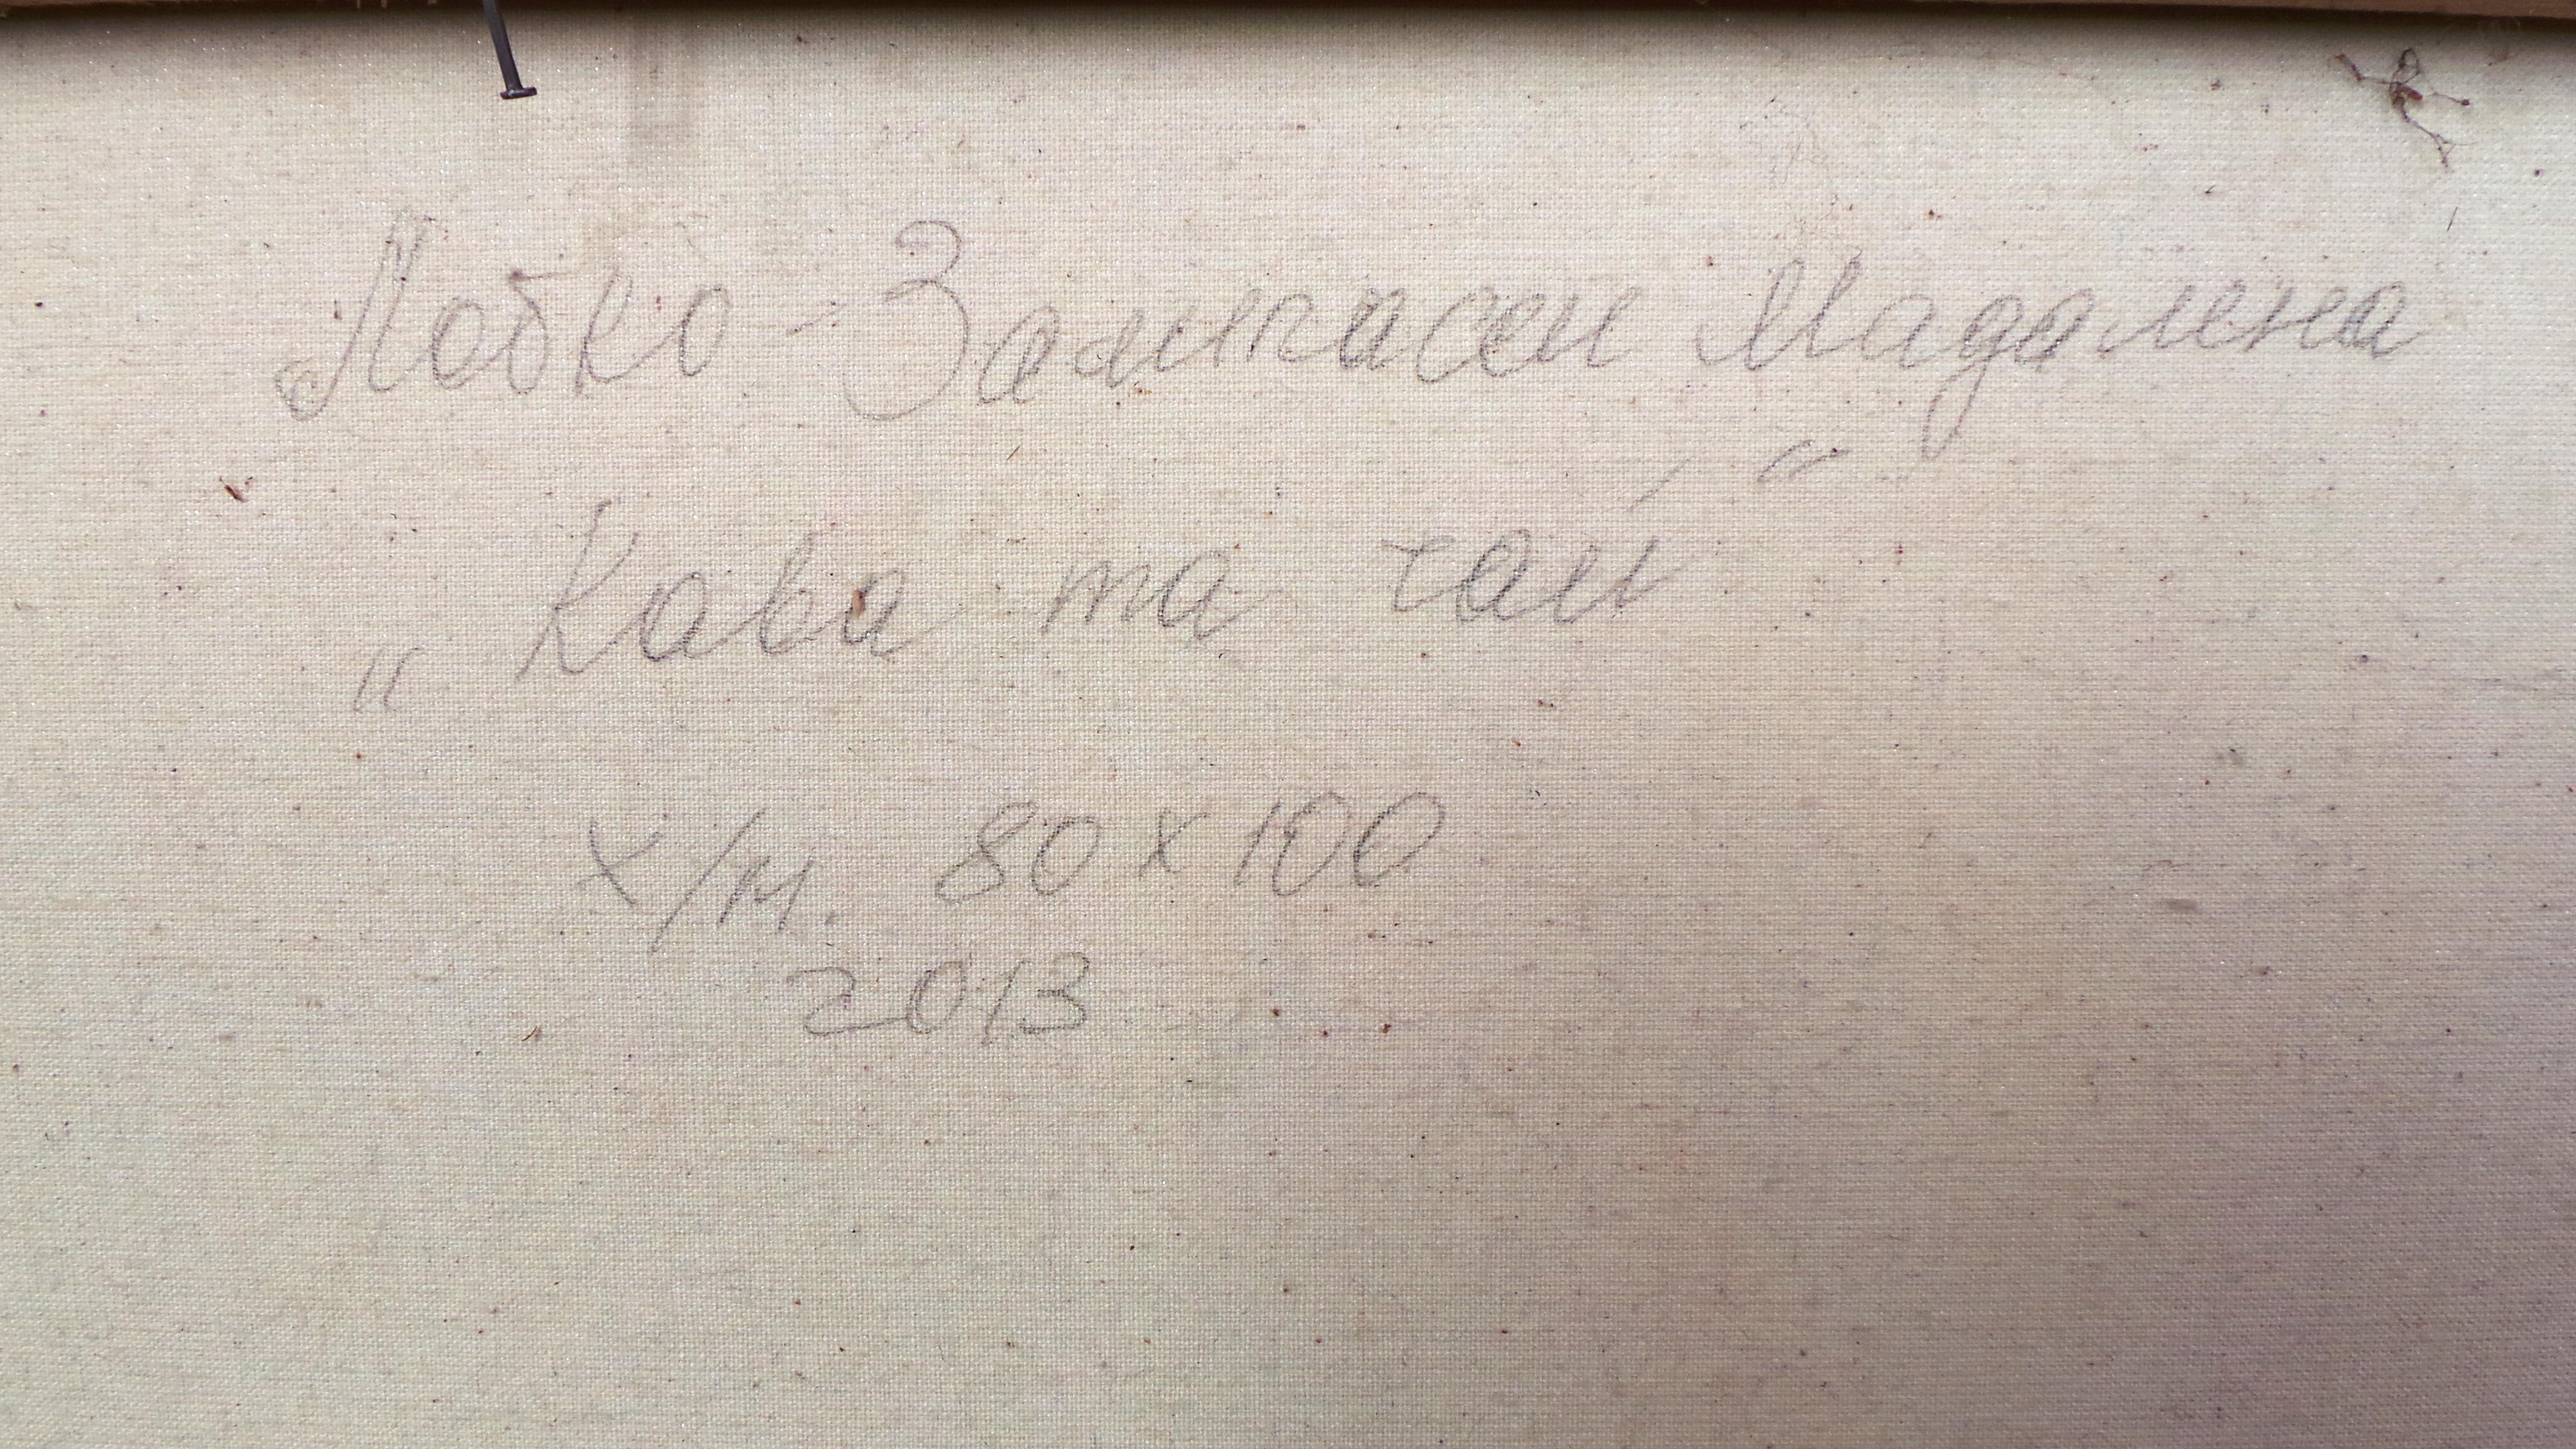 Лобко - Зампасен Мадалена
„ Кава та чай "
х/м. 80 х 100
2013